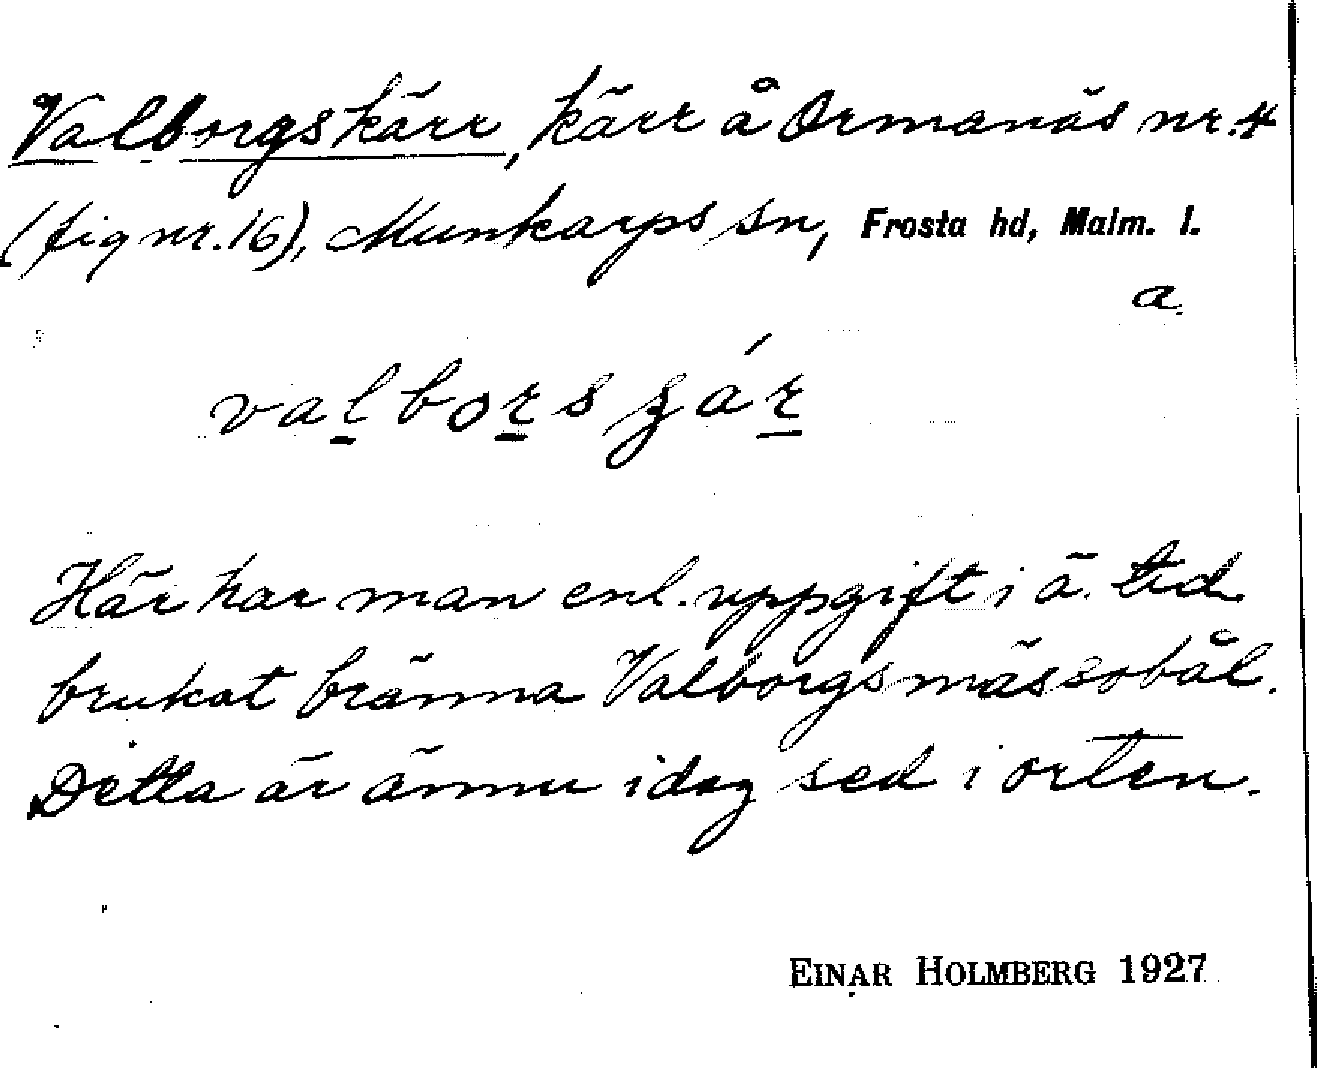 Valborgskärr, kärr å Ormanäs nr. 4
(fig nr. 16), Munkarps sn, Frosta hd, Malm. l.
a.
Här har man enl. uppgift i ä. tid
brukat bränna Valborgsmässobål.
Detta är ännu idag sed i orten.
EINAR HOLMBERG 1927